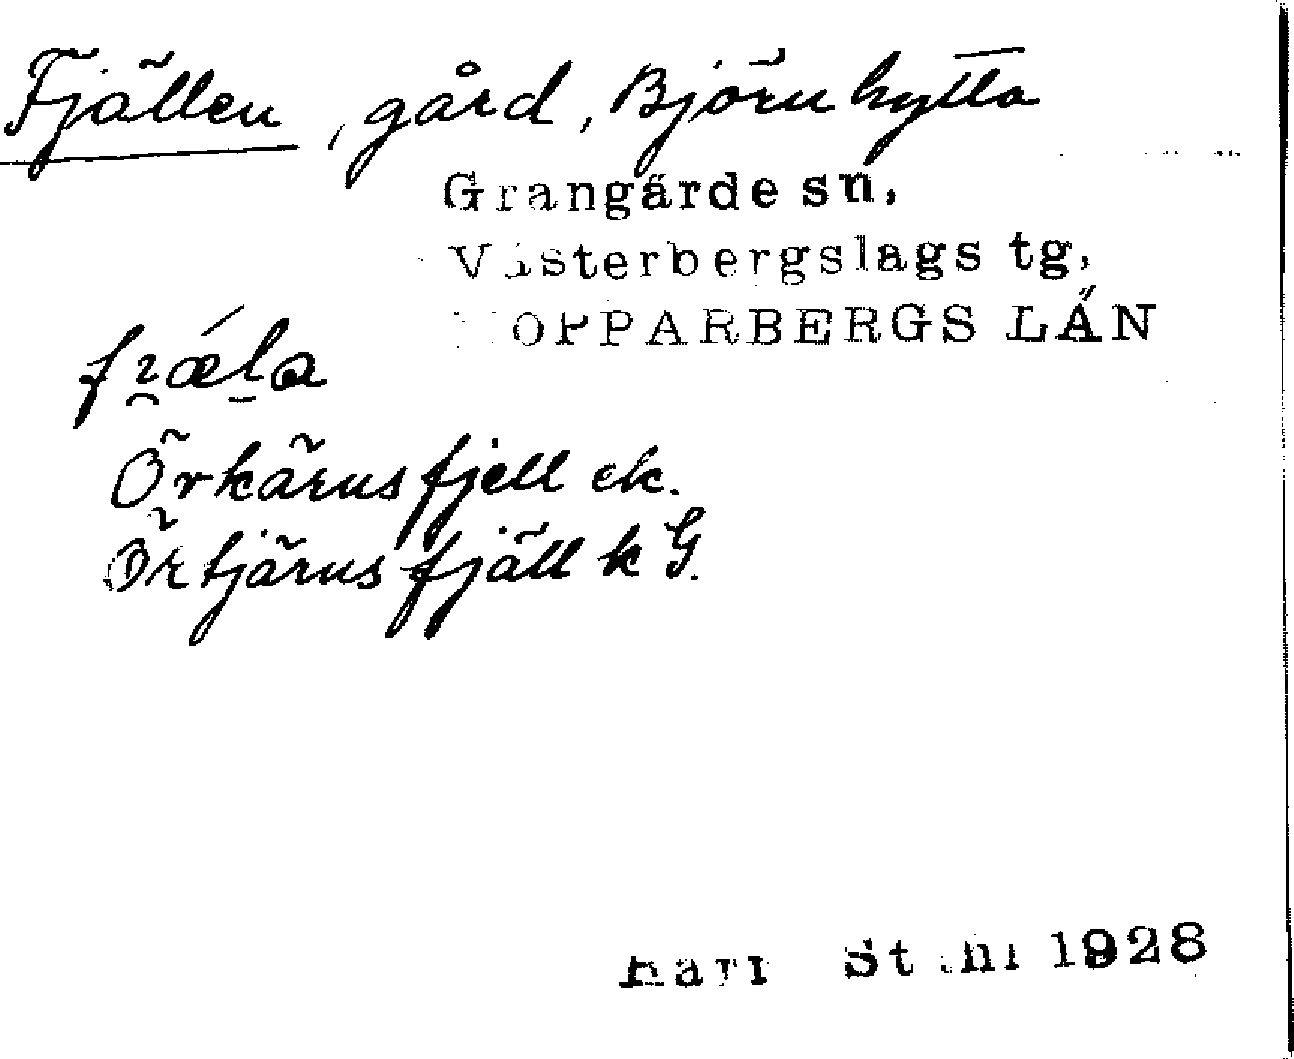 Fjällen, gård, Björnhytta
Grangärde sn,
Västerbergslags tg,
KOPPARBERGS LÄN
Örkärnsfjell ek.
Örtjärnsfjäll k G.
Harry Ståhl 1928